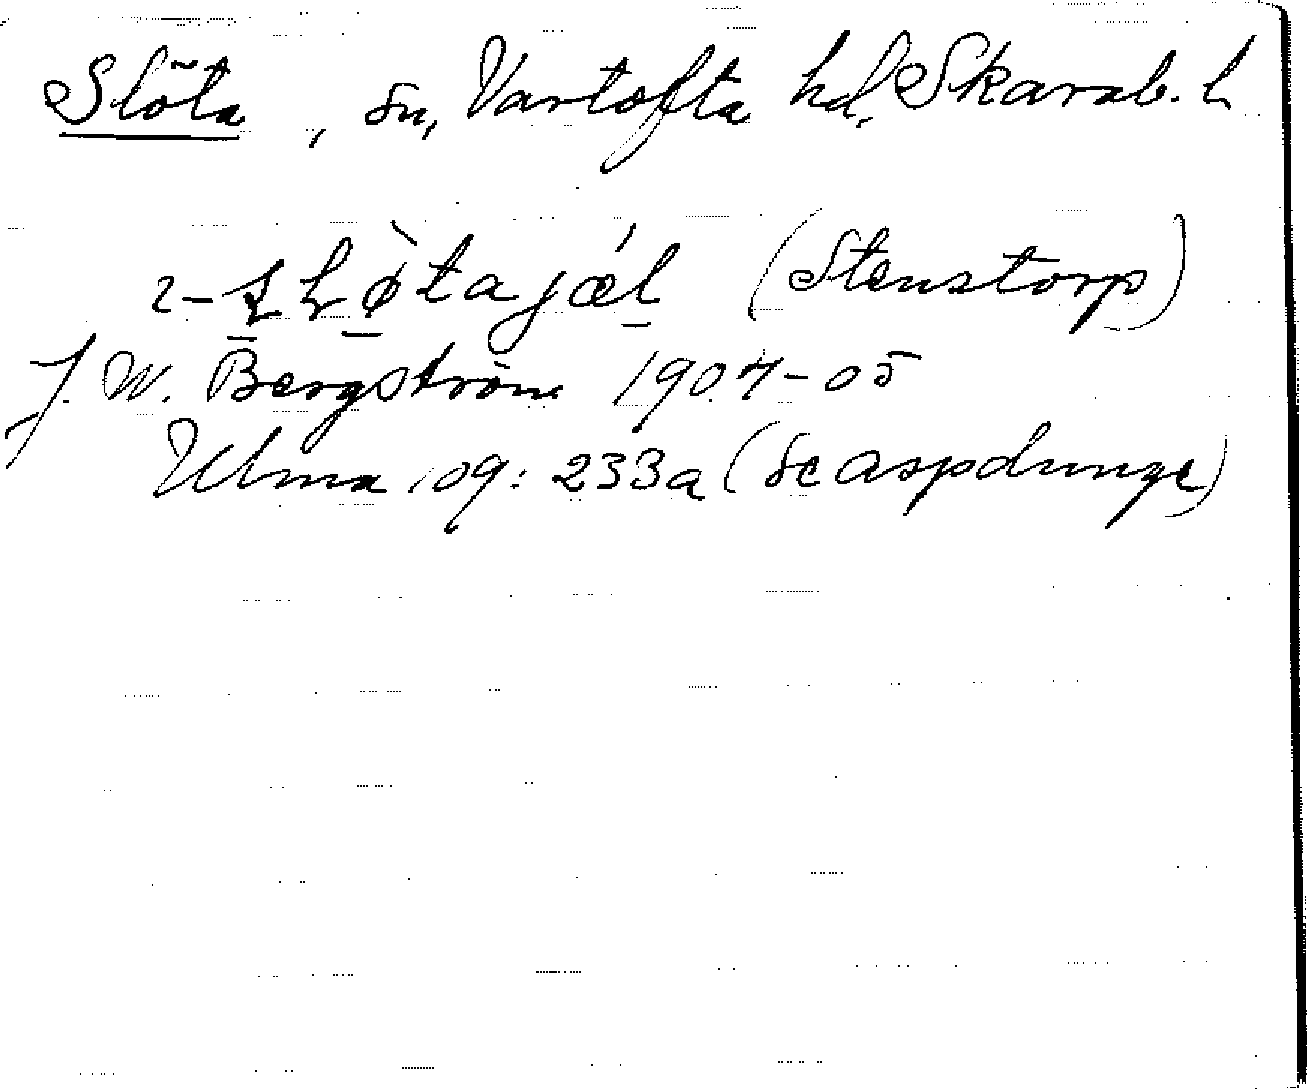 Slöta, sn, Vartofta hd, Skarab. l
(Stenstorp)
J. W. Bergström 1904-05
Ulma 09: 233a (se aspdunge)